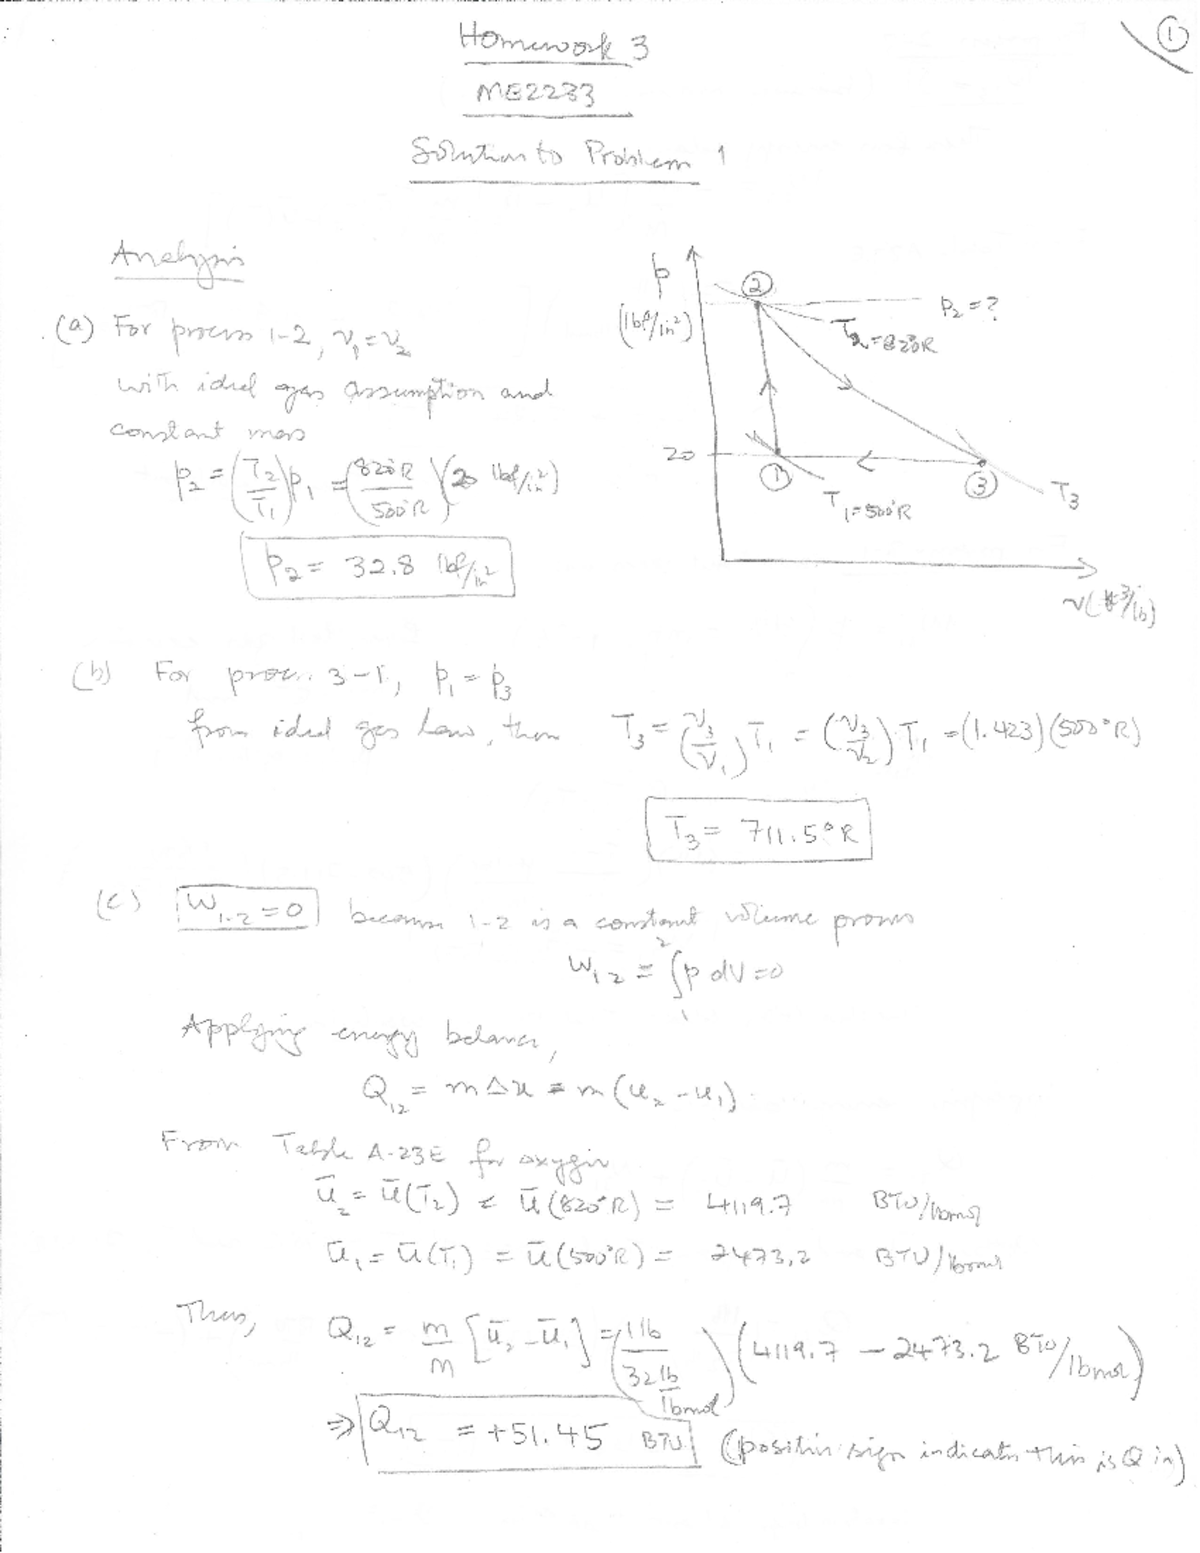 ①
Homework 3
ME2233
Solution to Problem 1
Analysis
(a) For process 1-2, v₁=v₂
with ideal gas assumption and
constant mass
p₂ = (T₂/T₁)p₁ = (820°R/500°R)(20 lbf/in²)
p₂ = 32.8 lbf/in²
p
(lbf/in²)
②
p₂=?
T₂=820°R
20
①
③
T₁=500°R
T₃
v(ft³/lb)
(b) For proc. 3-1, p₁ = p₃
from ideal gas law, then T₃ = (v₃/v₁)T₁ = (v₃/v₂)T₁ = (1.423)(500°R)
T₃ = 711.5°R
(c) W₁₋₂=0 because 1-2 is a constant volume process
W₁₂ = ∫₁² p dV=0
Applying energy balance,
Q₁₂ = mΔu = m(u₂-u₁)
From Table A-23E for oxygen
ū₂ = ū(T₂) = ū(820°R) = 4119.7 BTU/lbmol
ū₁ = ū(T₁) = ū(500°R) = 2473.2 BTU/lbmol
Thus, Q₁₂ = m/M [ū₂-ū₁] = (1 lb/32 lb/lbmol)(4119.7 - 2473.2 BTU/lbmol)
⇒ Q₁₂ = +51.45 BTU (positive sign indicates this is Q in)